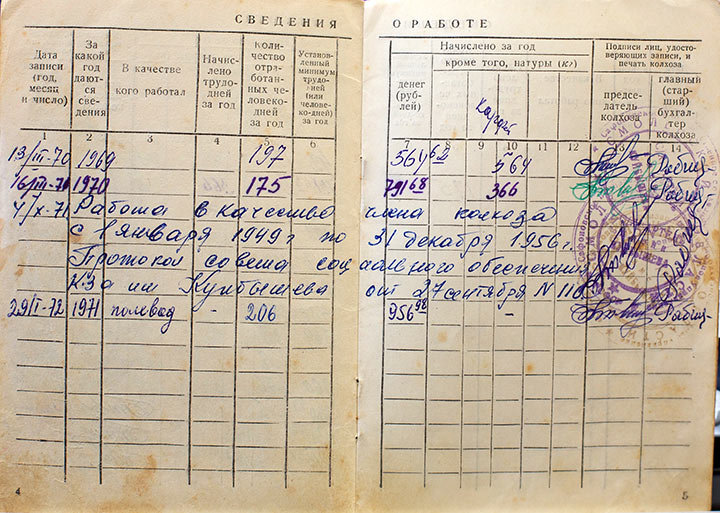 СВЕДЕНИЯ О РАБОТЕ
Дата (год, месяц и число)
За какой год даются сведения
В качестве кого работал
Начислено трудодней за год
Количество отработанных человекодней за год
Установленный минимум трудодней (или человекодней) за год
Начислено за год
денег (рублей)
кроме того, натуры (кг)
Подписи лиц, удостоверяющих записи, и печать колхоза
председатель колхоза
главный (старший) бухгалтер колхоза
1 2 3 4 5 6 7 8 9 10 11 12 13 14
13/III-70 1969 197 564 62 - 564
16/III-71 1970 175 791 68 366
4/X-71 Работа в качестве члена колхоза
с 1 января 1949 г по 31 декабря 1956 г.
Протокол совета социального обеспечения
к-за им Куйбышева от 27 сентября N 116
29/I-72 1971 полевод - 206 956 98 - -
4
5